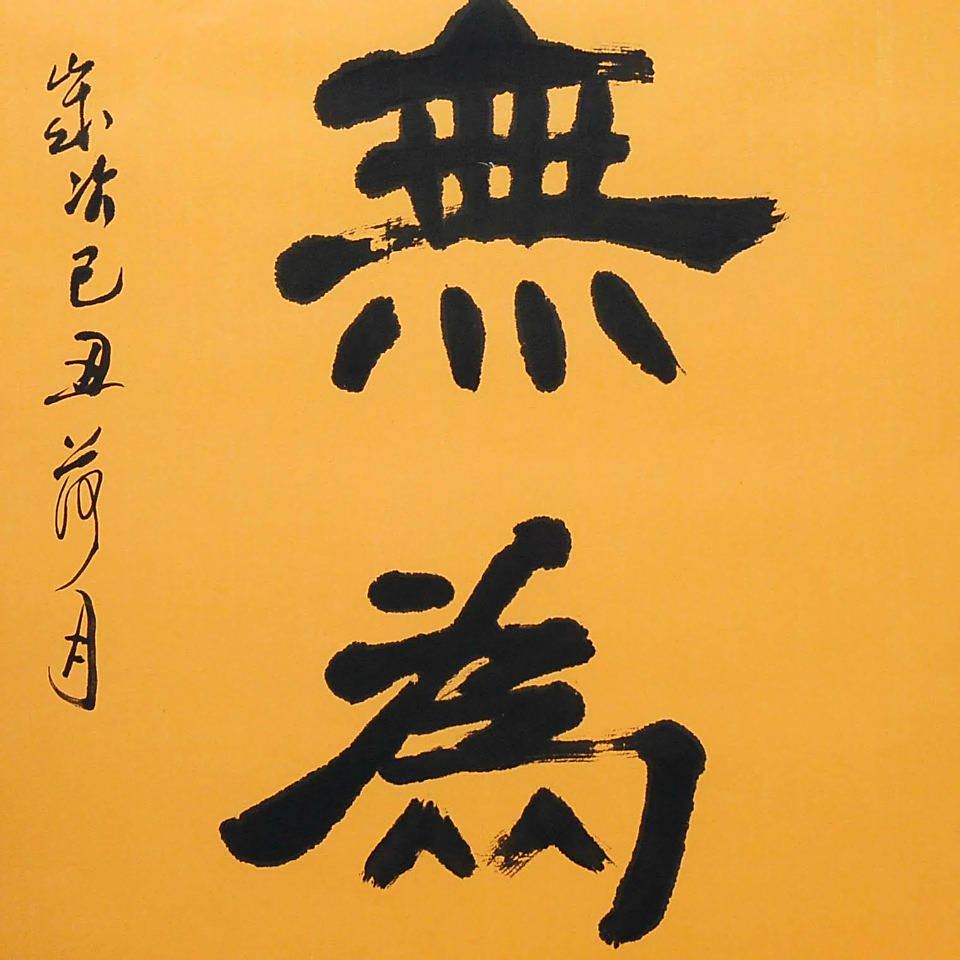 無為
歲次己丑荷月